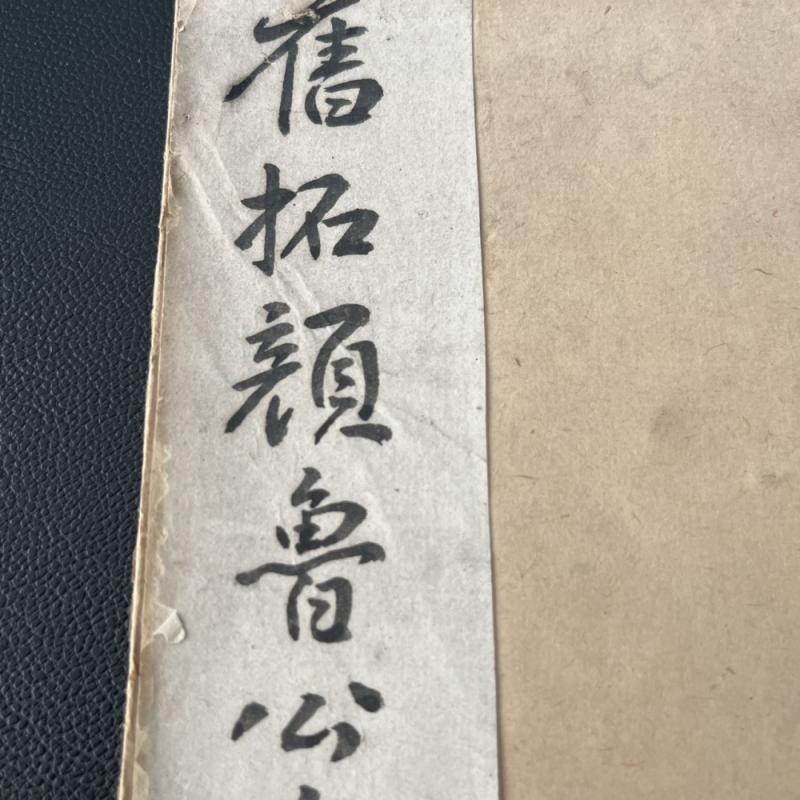 舊拓顏魯公